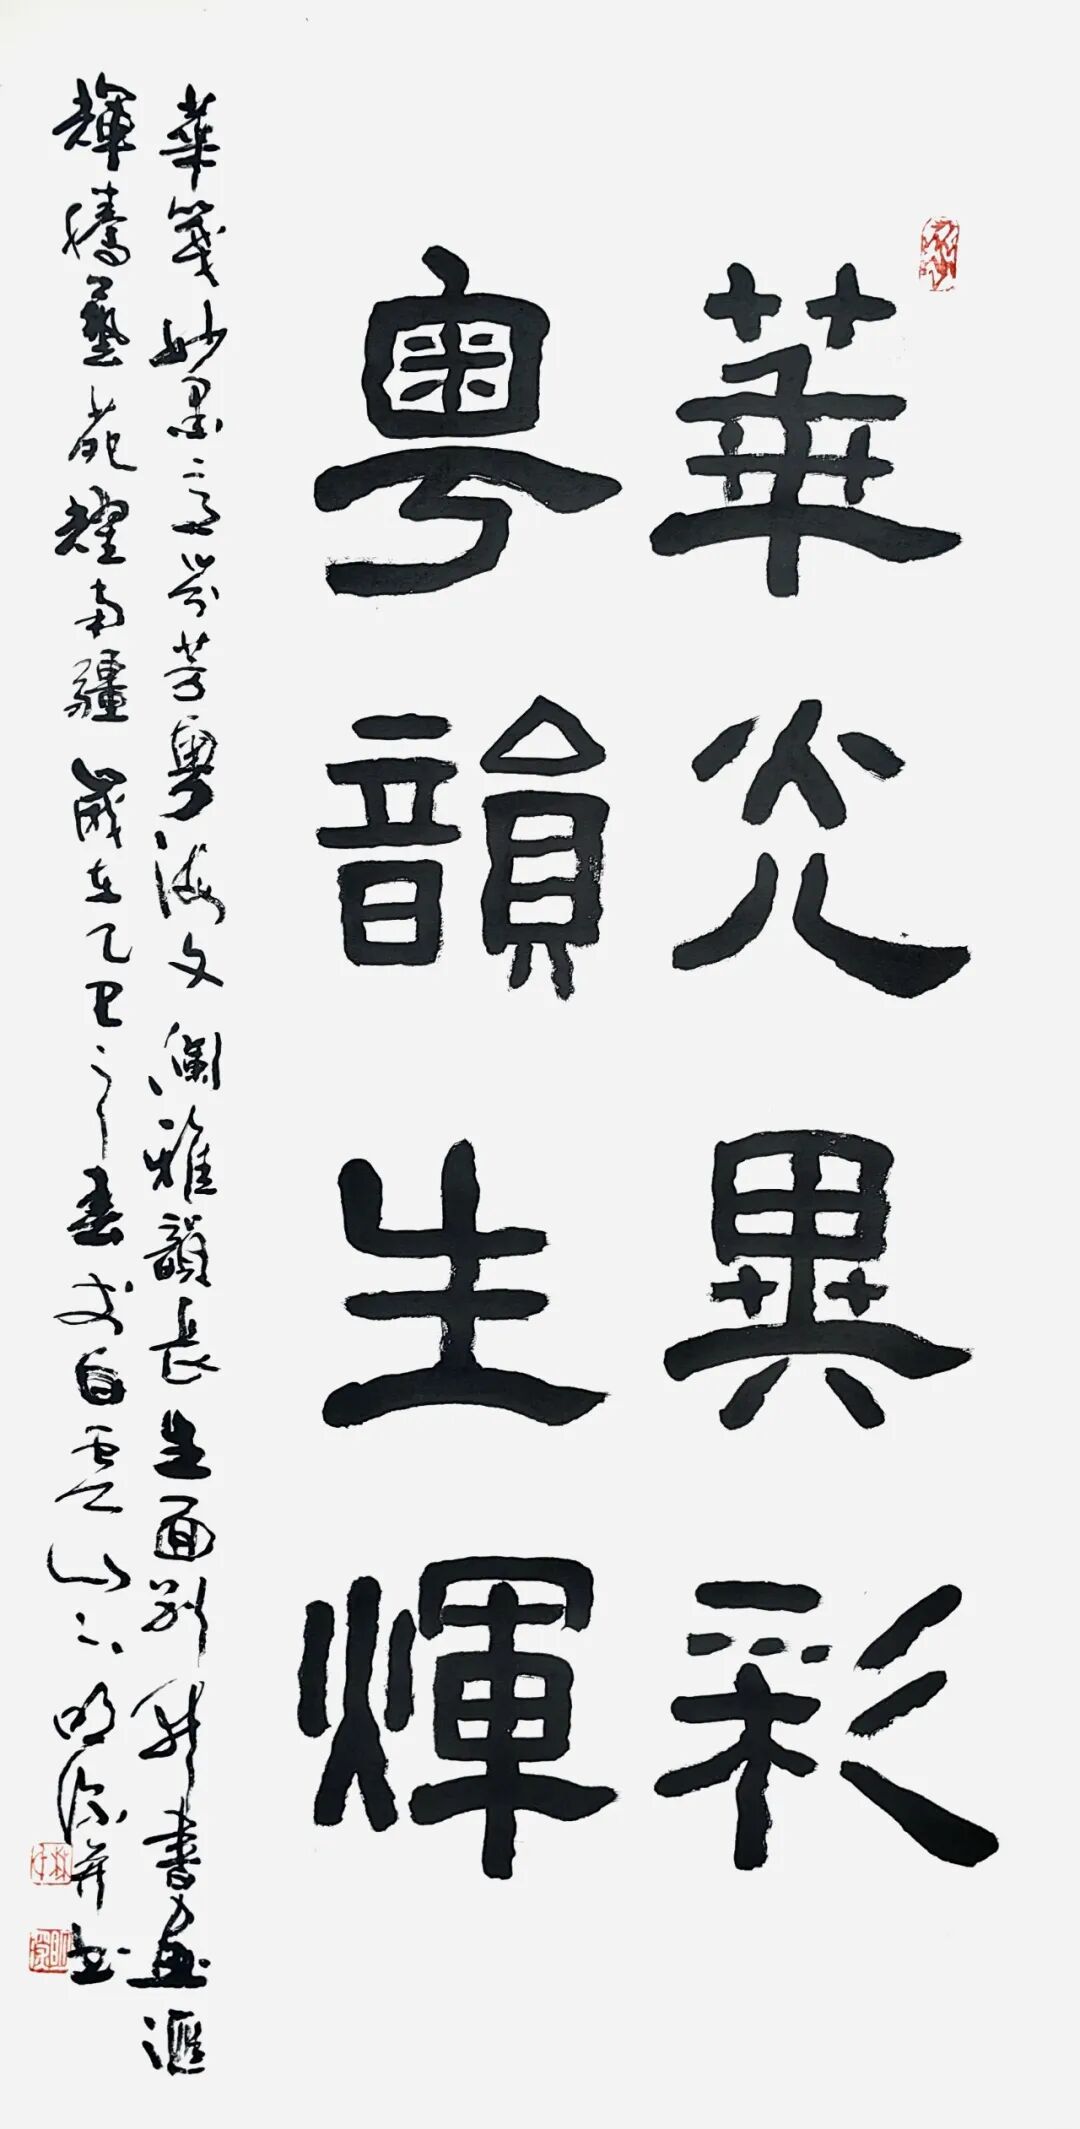 華光異彩
粵韻生煇
華箋妙墨芬芳粵海文瀾雅韻長生面別開書畫滙
輝騰藝苑耀南疆歲在乙巳之春於白雲山下明深并書